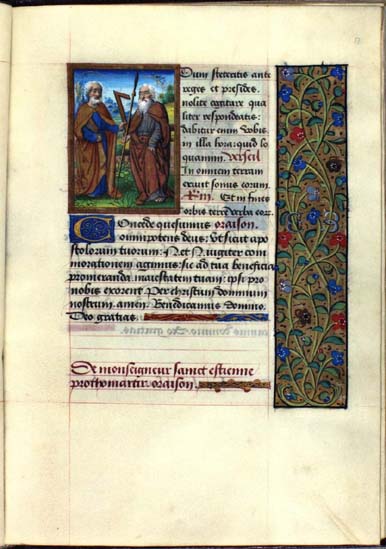 Dum steteritis ante
reges et presides.
nolite cogitare qua
liter respondeatis:
dabitur enim vobis.
in illa hora: quid lo
quamini. Verseil
In omnem terram
exivit sonus eorum.
Et in fines
orbis terre verba eor.
Concede quesumus oraison.
omnipotens deus: Ut sicut apo
stolorum tuorum: N. et N. iugiter com
morationem agimus: sic ad tua beneficia
promerenda maiestatem tuam: ipsi pro
nobis exorent. Per christum dominum
nostrum. amen. Benedicamus domino.
Deo gratias.
De monseigneur sainct estienne
prothomartir oraison.